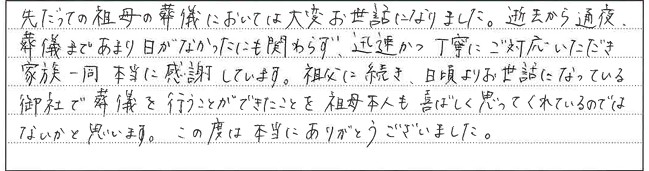 先だっての祖母の葬儀においては大変お世話になりました。逝去から通夜、
葬儀まであまり日がなかったにも関わらず、迅速かつ丁寧にご対応いただき
家族一同本当に感謝しています。祖父に続き、日頃よりお世話になっている
御社で葬儀を行うことができたことを祖母本人も喜ばしく思ってくれているのでは
ないかと思います。この度は本当にありがとうございました。